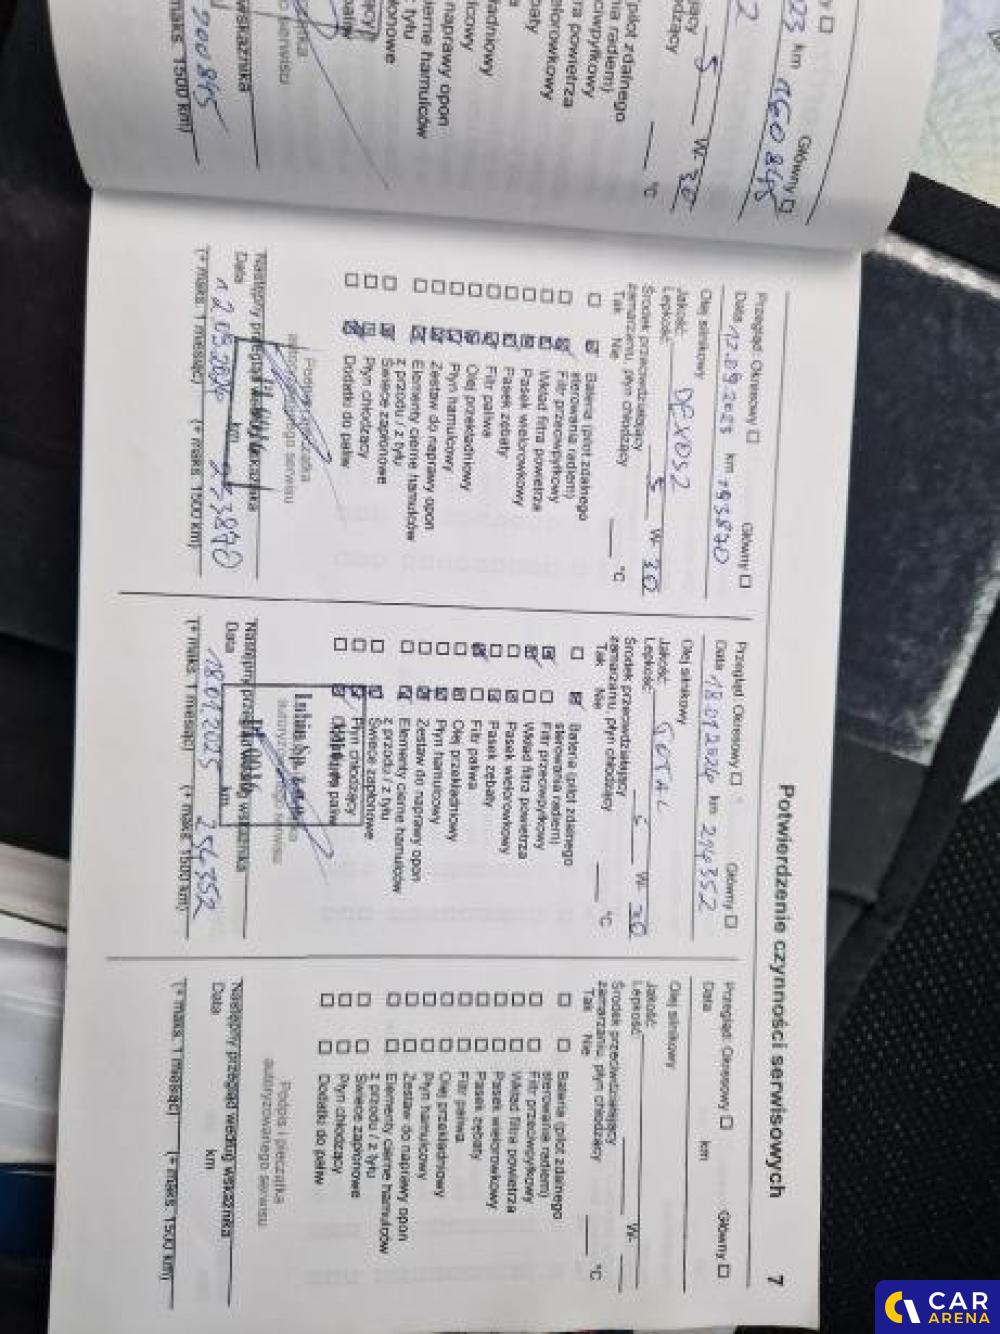 Potwierdzenie czynności serwisowych
7
Główny
023 km 160 845
5 W- 30
°C
pilot zdalnego
nia radiem)
ciwpyłkowy
ra powietrza
elorowkowy
baty
adniowy
lcowy
naprawy opon
ierne hamulców
z tyłu
łonowe
o serwisu
wskaźnika
200 845
maks 1500 km)
Przegląd: Okresowy Główny
Data 12.09.2023 km 193870
Olej silnikowy
Jakość: DEXOS2
Lepkość: 5 W- 30
Środek przeciwdziałający
zamarzaniu, płyn chłodzący °C
Tak Nie
Bateria (pilot zdalnego
sterowania radiem)
Filtr przeciwpyłkowy
Wkład filtra powietrza
Pasek wielorowkowy
Pasek zębaty
Filtr paliwa
Olej przekładniowy
Płyn hamulcowy
Zestaw do naprawy opon
Elementy cierne hamulców
z przodu / z tyłu
Świece zapłonowe
Płyn chłodzący
Dodatki do paliw
Następny przegląd według wskaźnika
Data 12.09.2024 km 233870
(+ maks. 1 miesiąc) (+ maks. 1500 km)
Przegląd: Okresowy Główny
Data km 214352
Olej silnikowy
Jakość:
Lepkość: 5 W- 30
Środek przeciwdziałający
zamarzaniu, płyn chłodzący °C
Tak Nie
Bateria (pilot zdalnego
sterowania radiem)
Filtr przeciwpyłkowy
Wkład filtra powietrza
Pasek wielorowkowy
Pasek zębaty
Filtr paliwa
Olej przekładniowy
Płyn hamulcowy
Zestaw do naprawy opon
Elementy cierne hamulców
z przodu / z tyłu
Świece zapłonowe
Płyn chłodzący
Dodatki do paliw
autoryzowanego serwisu
Następny przegląd według wskaźnika
Data km 254352
(+ maks. 1 miesiąc) (+ maks. 1500 km)
Przegląd: Okresowy Główny
Data km
Olej silnikowy
Jakość:
Lepkość: W-
Środek przeciwdziałający
zamarzaniu, płyn chłodzący °C
Tak Nie
Bateria (pilot zdalnego
sterowania radiem)
Filtr przeciwpyłkowy
Wkład filtra powietrza
Pasek wielorowkowy
Pasek zębaty
Filtr paliwa
Olej przekładniowy
Płyn hamulcowy
Zestaw do naprawy opon
Elementy cierne hamulców
z przodu / z tyłu
Świece zapłonowe
Płyn chłodzący
Dodatki do paliw
Podpis i pieczątka
autoryzowanego serwisu
Następny przegląd według wskaźnika
Data km
(+ maks. 1 miesiąc) (+ maks. 1500 km)
CAR
ARENA